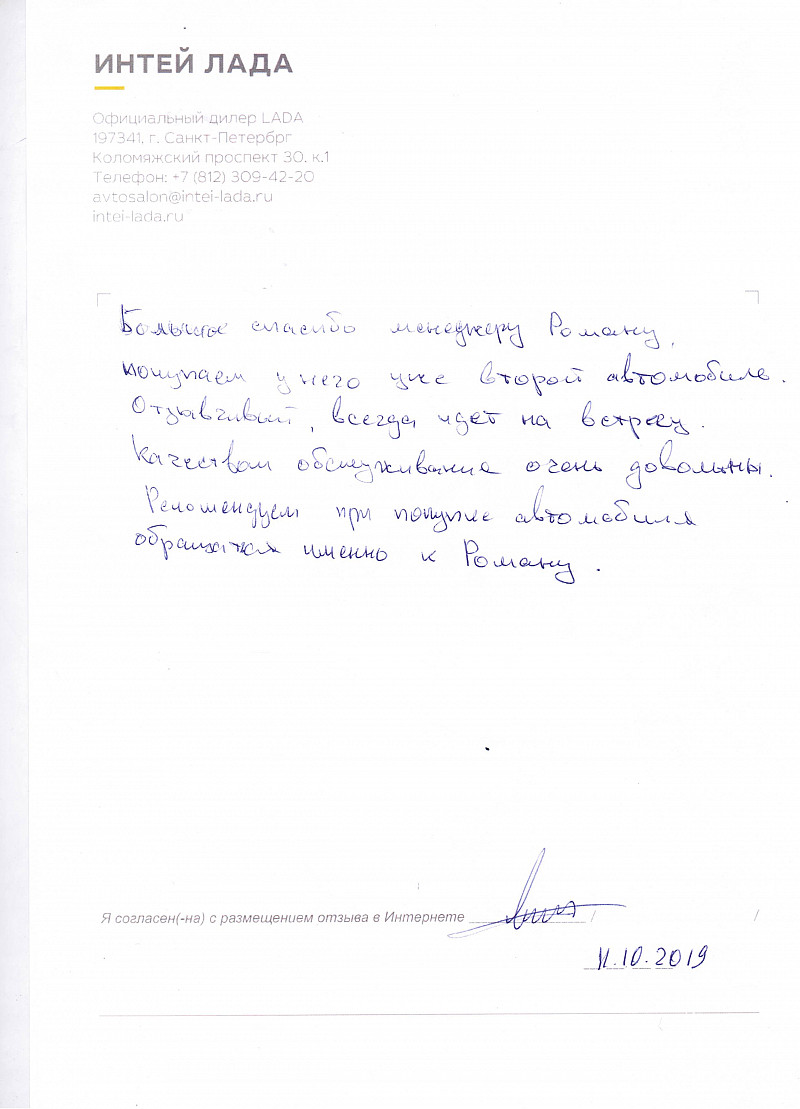 ИНТЕЙ ЛАДА
Официальный дилер LADA
197341, г. Санкт-Петербрг
Коломяжский проспект 30, к.1
Телефон: +7 (812) 309-42-20
avtosalon@intei-lada.ru
intei-lada.ru
Большое спасибо менеджеру Роману,
покупаем у него уже второй автомобиль.
Отзывчивый, всегда идет на встречу.
Качеством обслуживание очень довольны.
Рекомендуем при покупке автомобиля
обращатся именно к Роману.
Я согласен(-на) с размещением отзыва в Интернете / /
11.10.2019